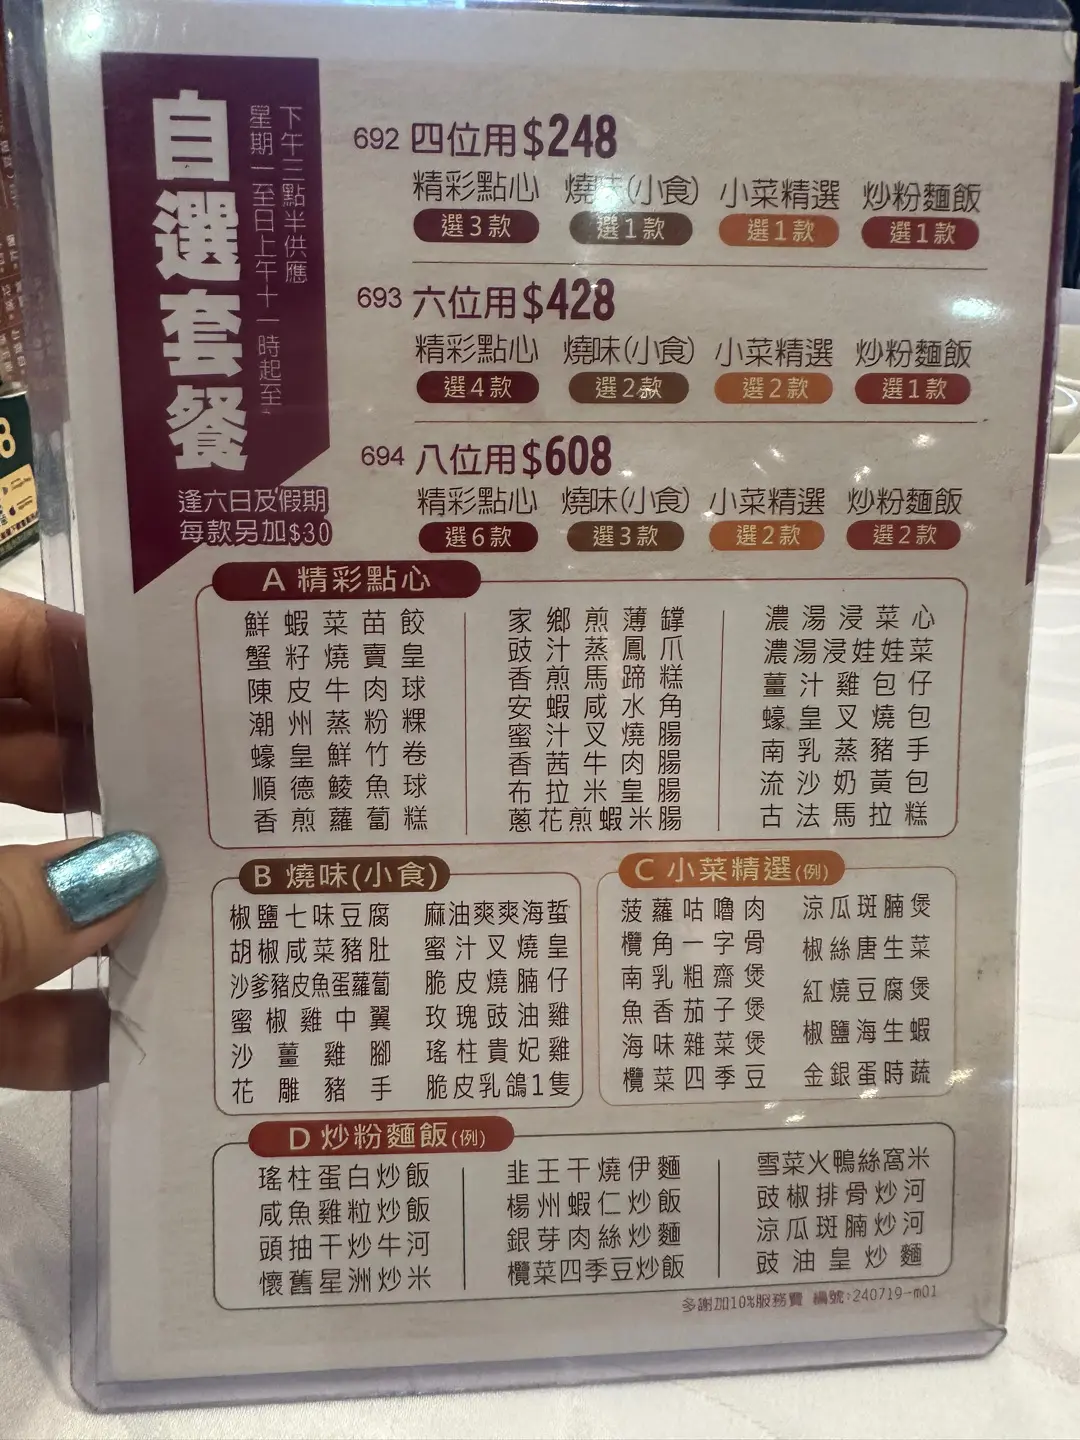 自選套餐
星期一至日上午十一時起至
下午三點半供應
逢六日及假期
每款另加$30
692 四位用$248
精彩點心 燒味(小食) 小菜精選 炒粉麵飯
選3款 選1款 選1款 選1款
693 六位用$428
精彩點心 燒味(小食) 小菜精選 炒粉麵飯
選4款 選2款 選2款 選1款
694 八位用$608
精彩點心 燒味(小食) 小菜精選 炒粉麵飯
選6款 選3款 選2款 選2款
A 精彩點心
鮮蝦菜苗餃
蟹籽燒賣皇
陳皮牛肉球
潮州蒸粉粿
蠔皇鮮竹卷
順德鯪魚球
香煎蘿蔔糕
家鄉煎薄罉
豉汁蒸鳳爪
香煎馬蹄糕
安蝦咸水角
蜜汁叉燒腸
香茜牛肉腸
布拉米皇腸
蔥花煎蝦米腸
濃湯浸菜心
濃湯浸娃娃菜
薑汁雞包仔
蠔皇叉燒包
南乳蒸豬手
流沙奶黃包
古法馬拉糕
B 燒味(小食)
椒鹽七味豆腐
胡椒咸菜豬肚
沙爹豬皮魚蛋蘿蔔
蜜椒雞中翼
沙薑雞腳
花雕豬手
麻油爽爽海蜇
蜜汁叉燒皇
脆皮燒腩仔
玫瑰豉油雞
瑤柱貴妃雞
脆皮乳鴿1隻
C 小菜精選(例)
菠蘿咕嚕肉
欖角一字骨
南乳粗齋煲
魚香茄子煲
海味雜菜煲
欖菜四季豆
涼瓜斑腩煲
椒絲唐生菜
紅燒豆腐煲
椒鹽海生蝦
金銀蛋時蔬
D 炒粉麵飯(例)
瑤柱蛋白炒飯
咸魚雞粒炒飯
頭抽干炒牛河
懷舊星洲炒米
韭王干燒伊麵
楊州蝦仁炒飯
銀芽肉絲炒麵
欖菜四季豆炒飯
雪菜火鴨絲窩米
豉椒排骨炒河
涼瓜斑腩炒河
豉油皇炒麵
多謝加10%服務費 編號:240719-m01